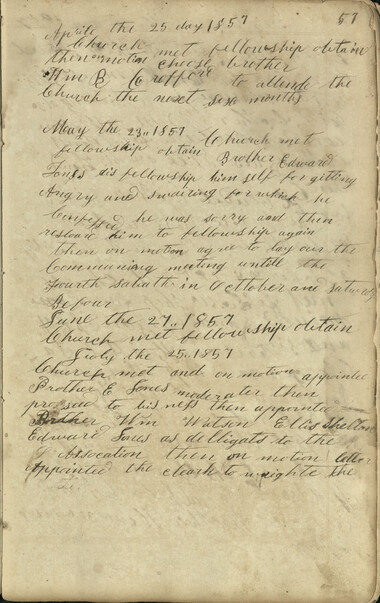 57
Aprile the 25 day 1857
Church met fellowship obtain
then on motion choose brother
Wm B to attende the
Church the next six months
May the 23.. 1857 Church met
fellowship obtain Brother Edward
Jones dis fellowship him self for gitting
Angry and swaring for which he
Confessd he was sorry and then
restord him to fellowship again
then on motion agree to lay our the
Communing meeting untill the
fourth sabath in October and saturday
Before
June the 27.. 1857
Church met fellowship obtain
July the 25.. 1857
Church met and on motion appointed
Brother E Jones moderater then
pro sed to bis ness then appointe
Brother Wm Watson Ellis Shelton
Edward Jones as delligats to the
Assocation then on motion letter
Appointed the cleark to wrighte the